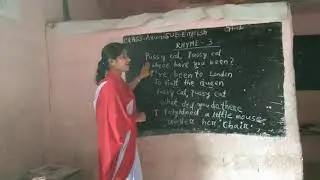 SUB-ENGLISH
RHYME-3
Pussy cat, Pussy cat
where have you been?
I've been to London
To visit the queen
Pussy cat, Pussy cat
what did you do there
I frightened a little mouse
under her "Chair".